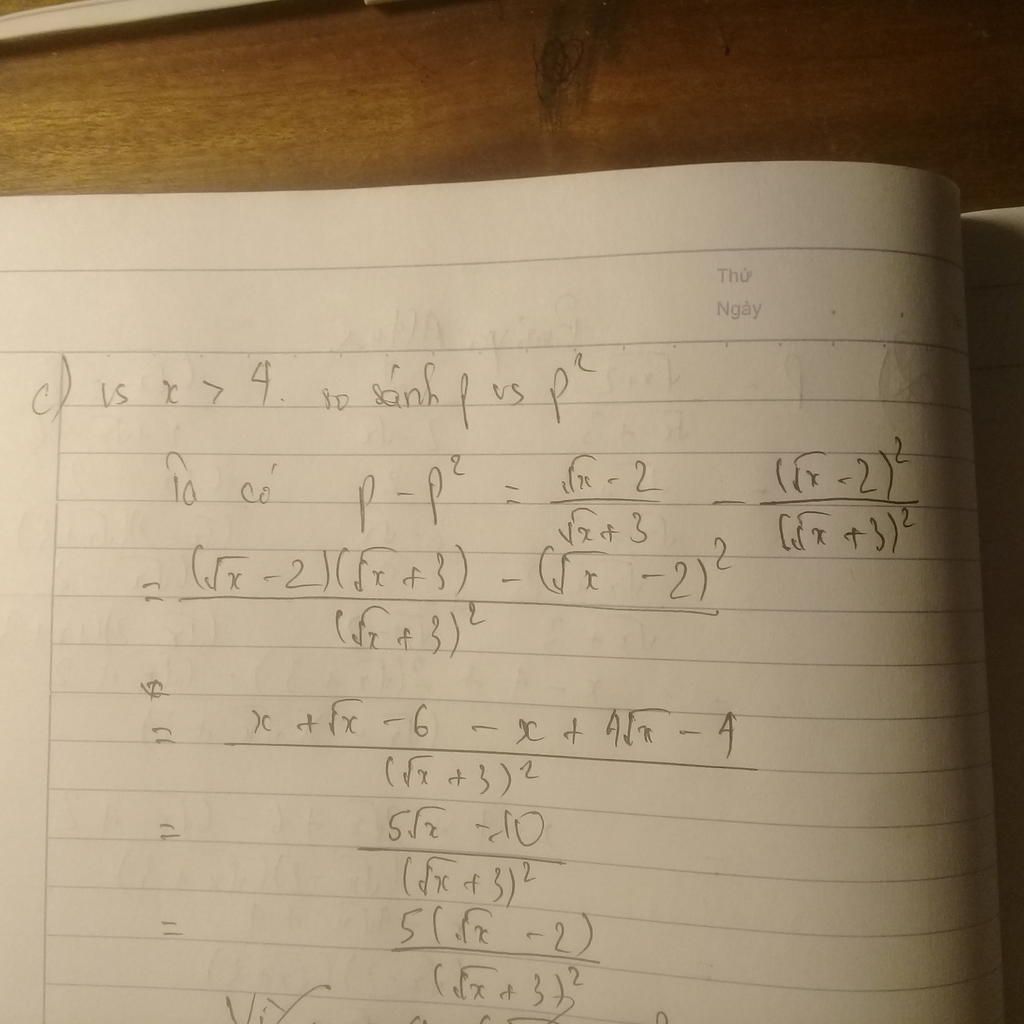 Thứ
Ngày
c) vs x > 4. so sánh p vs p²
Ta có p - p² = (√x - 2)/(√x + 3) - (√x - 2)²/(√x + 3)²
= ((√x - 2)(√x + 3) - (√x - 2)²)/(√x + 3)²
= (x + √x - 6 - x + 4√x - 4)/(√x + 3)²
= (5√x - 10)/(√x + 3)²
= 5(√x - 2)/(√x + 3)²
Vì